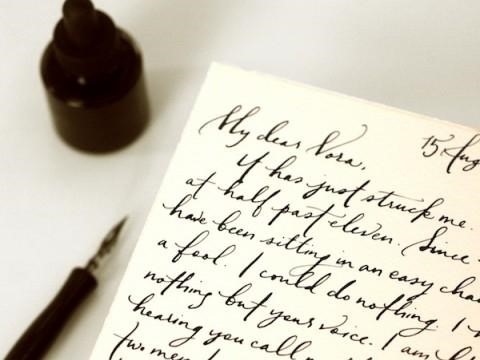 My dear Nora, 15 Aug
It has just struck me.
at half past eleven. Since
have been sitting in an easy chai
a fool. I could do nothing. I
nothing but your voice. I am
hearing you call
two men